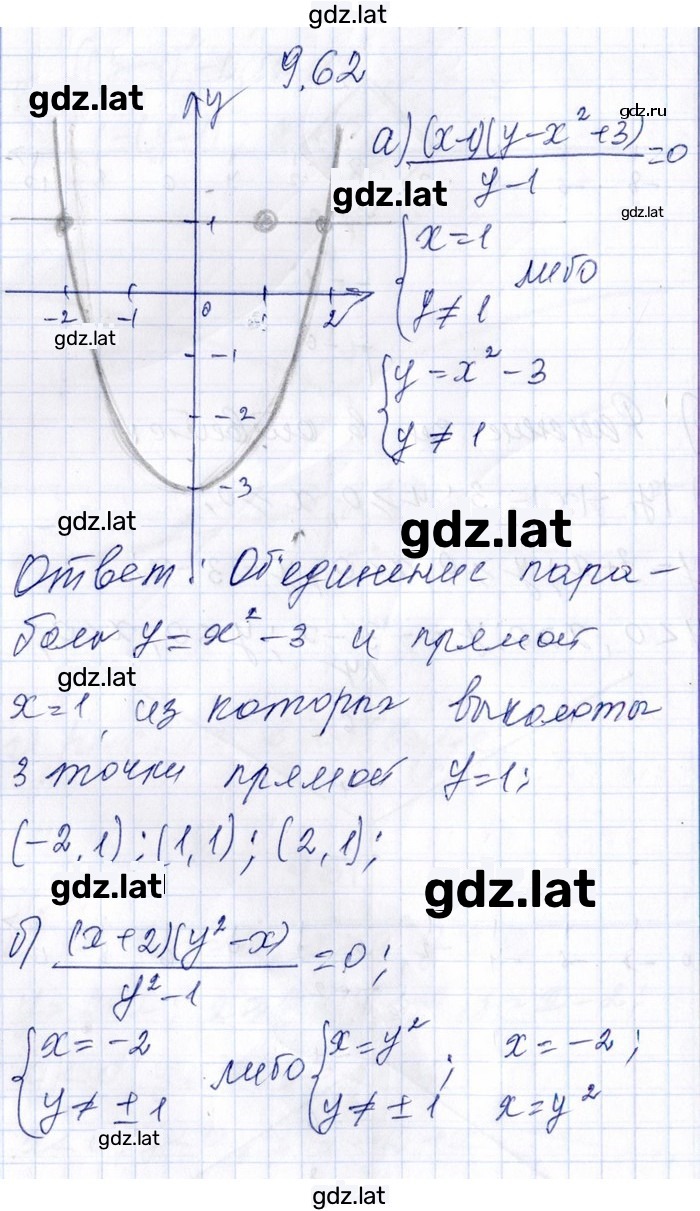 gdz.lat
9.62
gdz.lat
y
gdz.ru
а) (x-1)(y-x²+3)/y-1 =0
gdz.lat
gdz.lat
1
{x=1
y≠1 либо
-2 -1 0 1 2
gdz.lat
-1
{y=x²-3
y≠1
-2
-3
gdz.lat
gdz.lat
Ответ: Объединение пара-
болы y=x²-3 и прямой
gdz.lat
x=1, из которых выколоты
3 точки прямой y=1:
(-2,1); (1,1); (2,1);
gdz.lat
gdz.lat
б) (x+2)(y²-x)/y²-1 =0;
{x=-2 {x=y² x=-2;
y≠±1 либо y≠±1; x=y²
gdz.lat
gdz.lat